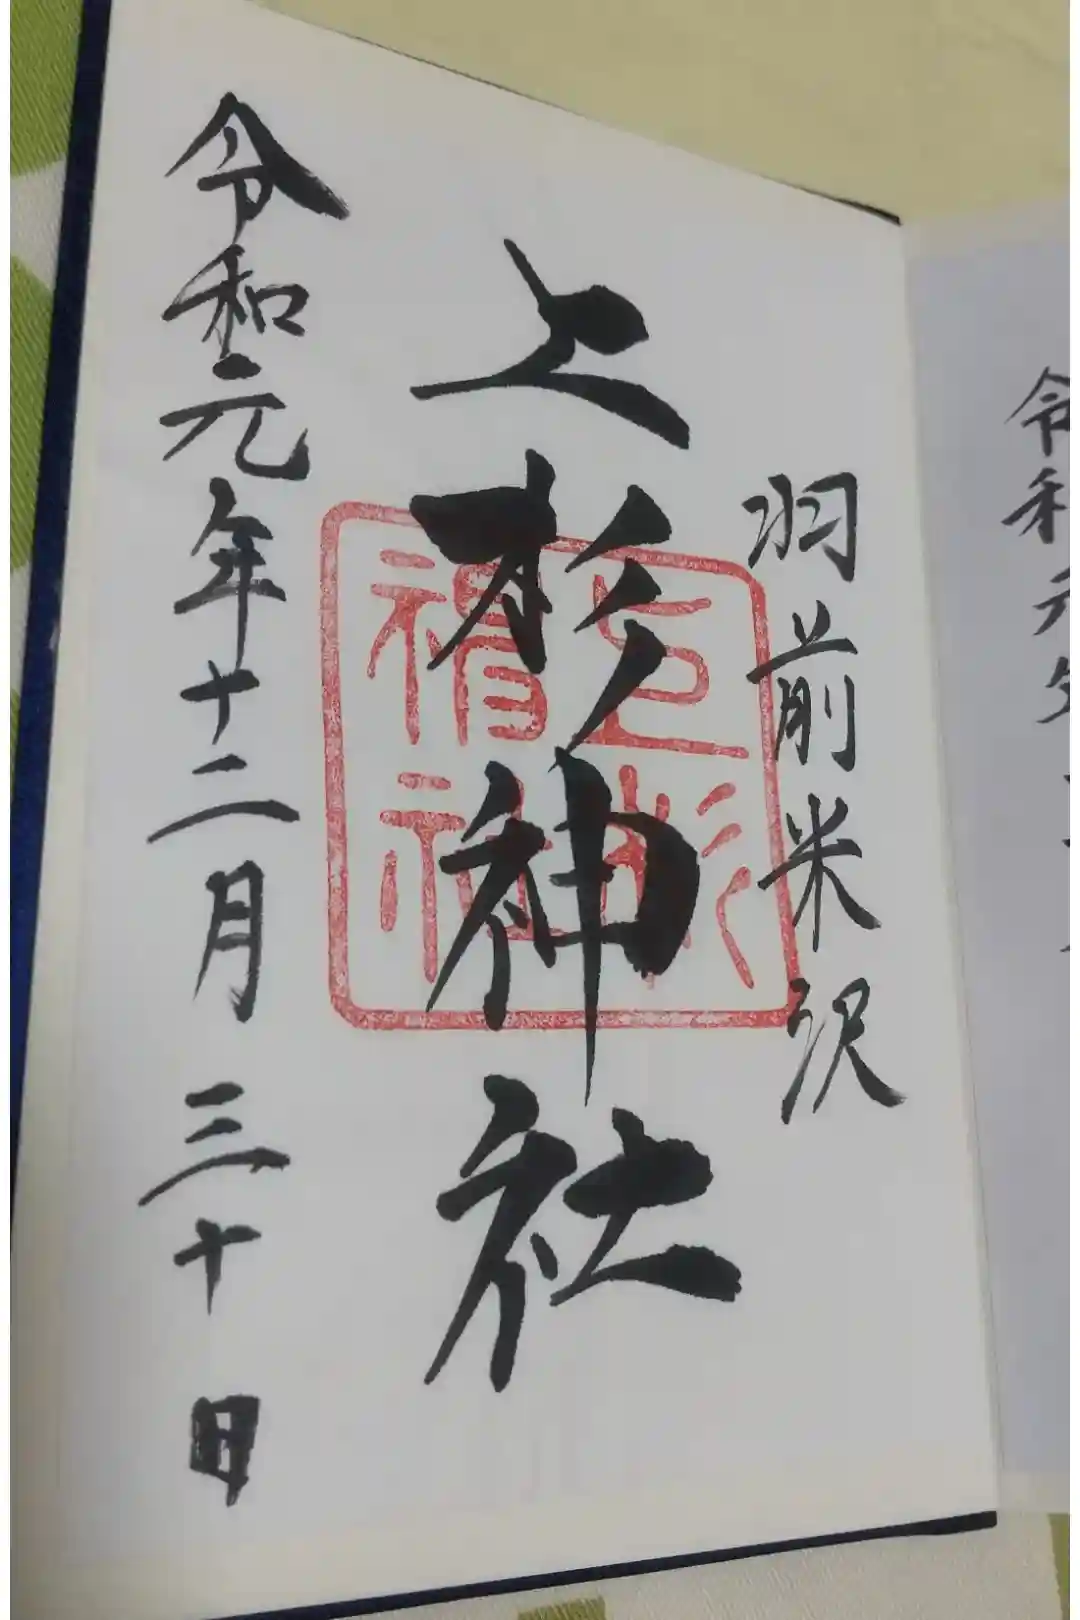 令和元年
羽前米沢
上杉神社
上杉神社
令和元年十二月三十日